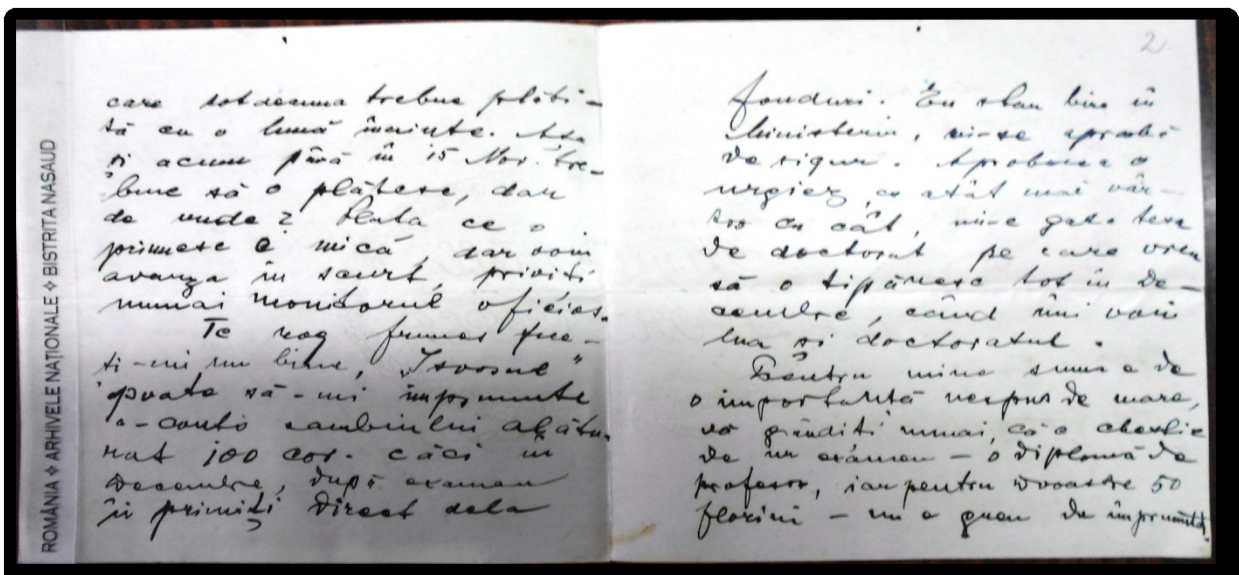 ROMÂNIA ❖ ARHIVELE NAȚIONALE ❖ BISTRITA NASAUD
care totdeauna trebue plăti-
tă cu o lună înainte. Așa
și acum până în 15 Nov. tre-
bue să o plătesc, dar
de unde? Plata ce o
primesc e mică, dar voiu
avanza în scurt, priviți
numai monitorul oficios.
Te rog frumos fce-
ți-mi un bine, „Isvorul"
poate să-mi împrumute
a-conto cambiului alătu-
rat 100 cor. căci în
Decembre, după examen
îi primiți direct dela
2
fonduri. Eu stau bine în
Ministeriu, mi-se aprobă
de sigur. Aprobarea o
urgiez, cu atât mai vâr-
tos cu cât, mi-e gata tesa
de doctorat pe care vreu
să o tipăresc tot în De-
cembre, când îmi voiu
lua și doctoratul.
Pentru mine suma e de
o importanță nespus de mare,
vă gândiți numai, că o chestie
de un examen – o diplomă de
profesor, iar pentru Dvoastre 50
florini – nu e greu de împrumutat.